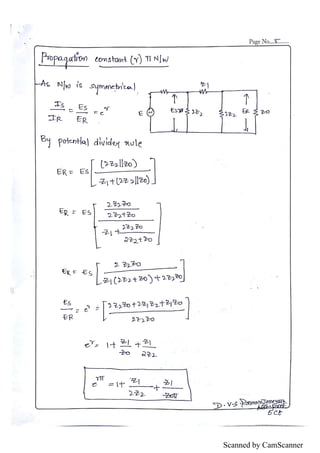 Page No...
Propagation constant (γ) π N/W
As N/w is symmetrical
Is/IR = Es/ER = e^γ
Z1
E
Es
2Z2
2Z2
ER
Z0
By potential divider rule
ER = Es [ (2Z2||Z0) / Z1+(2Z2||Z0) ]
ER = Es [ 2Z2Z0/2Z2+Z0 / Z1+ 2Z2Z0/2Z2+Z0 ]
ER = Es [ 2Z2Z0 / Z1(2Z2+Z0)+2Z2Z0 ]
Es/ER = e^γ = [ 2Z2Z0+2Z1Z2+Z1Z0 / 2Z2Z0 ]
e^γ = 1+ Z1/Z0 + Z1/2Z2
e^γπ = 1+ Z1/2Z2 + Z1/Z0π
ECE
Scanned by CamScanner